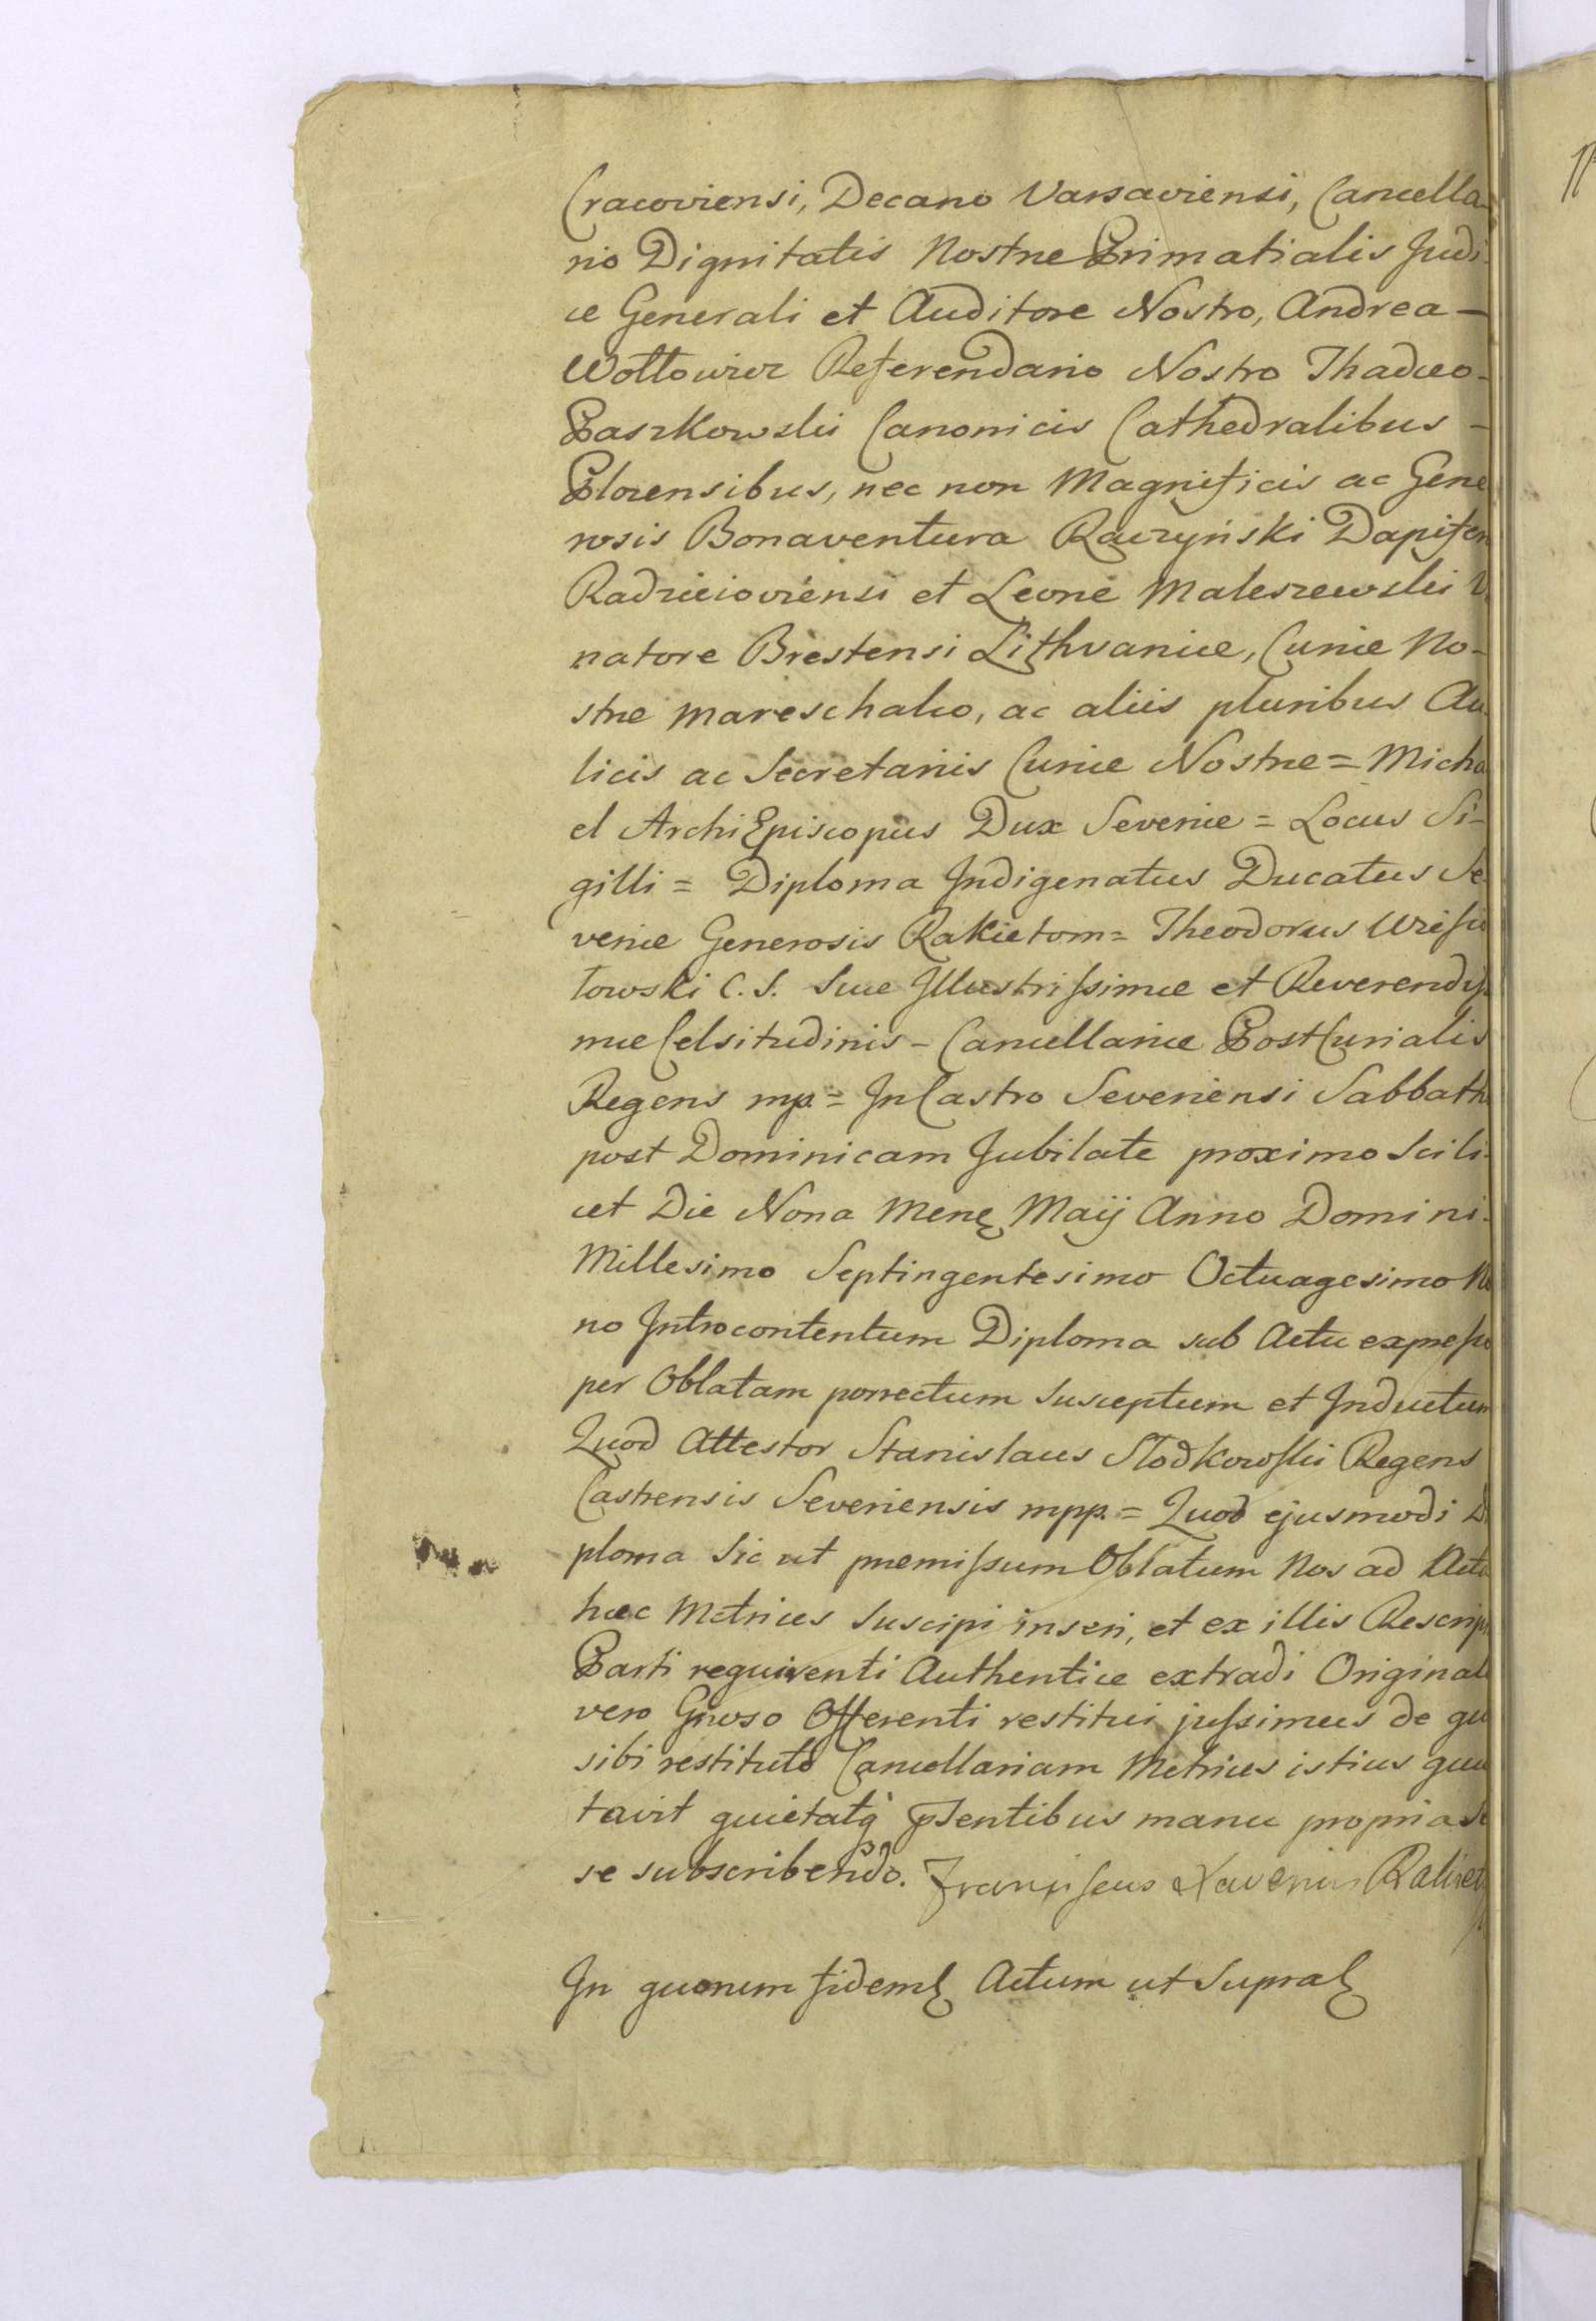 Cracoviensi, Decano Varsaviensi, Cancella-
rio Dignitatis Nostræ Primatialis Judi-
ce Generali et Auditore Nostro, Andrea -
Wołłowicz Referendario Nostro Thadæo -
Paszkowski Canonicis Cathedralibus -
Plocensibus, nec non Magnificis ac Gene
rosis Bonaventura Raczyński Dapifer
Radziejoviensi et Leone Maleszewski V
natore Brestensi Lithvaniæ, Curiæ No-
stræ Mareschalco, ac aliis pluribus Au-
licis ac Secretariis Curiæ Nostræ = Micha
el ArchiEpiscopus Dux Severiæ = Locus Si-
gilli = Diploma Indigenatus Ducatus Se
veriæ Generosis Rakietom = Theodorus
towski C. S. Suæ Illustrissimæ et Reverendis
mæ Celsitudinis - Cancellariæ PostCurialis
Regens mp. = In Castro Severiensi Sabbath
post Dominicam Jubilate proximo Scili-
cet Die Nona Mens Maij Anno Domini.
Millesimo Septingentesimo Octuagesimo No
no Introcontentum Diploma sub Actu expresso
per Oblatam porrectum Susceptum et Inductum
Quod Attestor Stanislaus Słodkowski Regens
Castrensis Severiensis mpp. = Quod ejusmodi Di
ploma Sic ut præmissum Oblatum Nos ad Acta
hæc Metrices Suscipi inseri, et ex illis Rescript
Parti requirenti Authentice extradi Original
vero Gnoso Offerenti restitui jussimus de quo
sibi restituto Cancellariam Metrices istius quie
tavit quietatq psentibus manu propria Se
se subscribendo. Franciscus Xaverius Rakiet
In quorum fidem Actum ut Supra